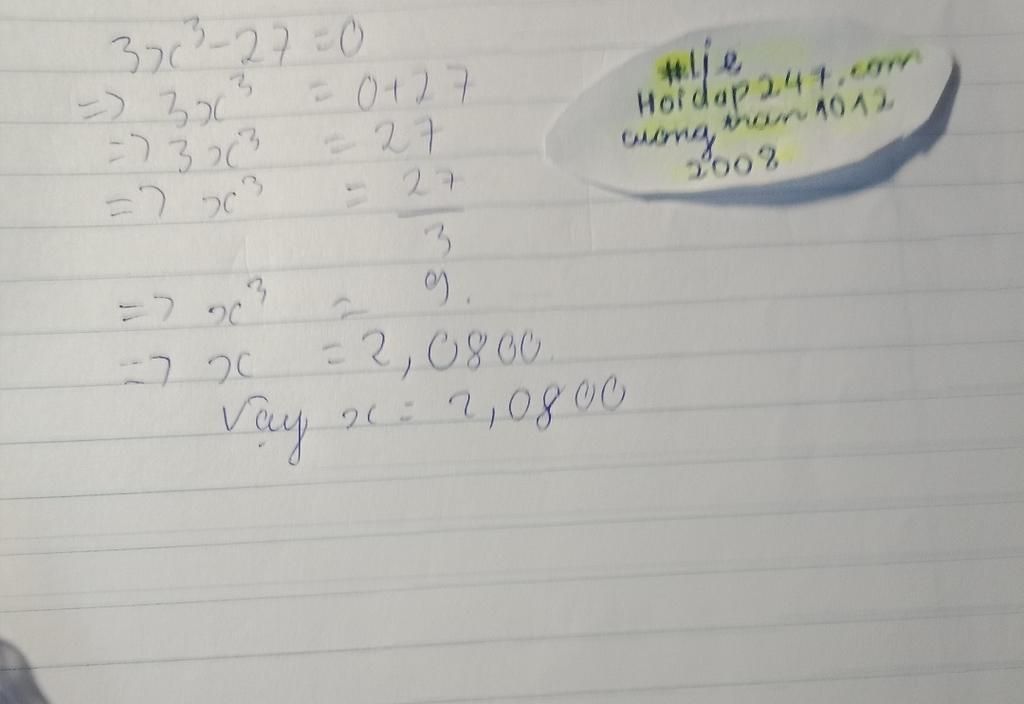 3x³ - 27 = 0
=> 3x³ = 0 + 27
=> 3x³ = 27
=> x³ = 27/3
=> x³ = 9.
=> x = 2,0800.
Vậy x = 2,0800
#Lie
Hoidap247.com
cuongtran1012
2008